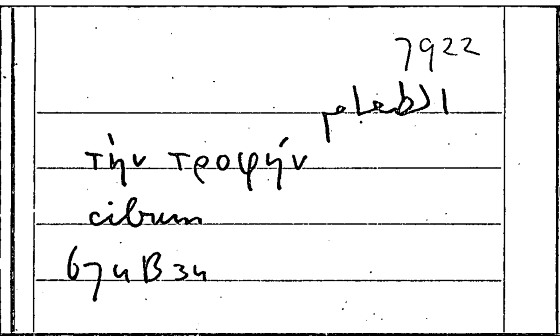 7922
الطعام
τὴν τροφήν
cibum
674B34